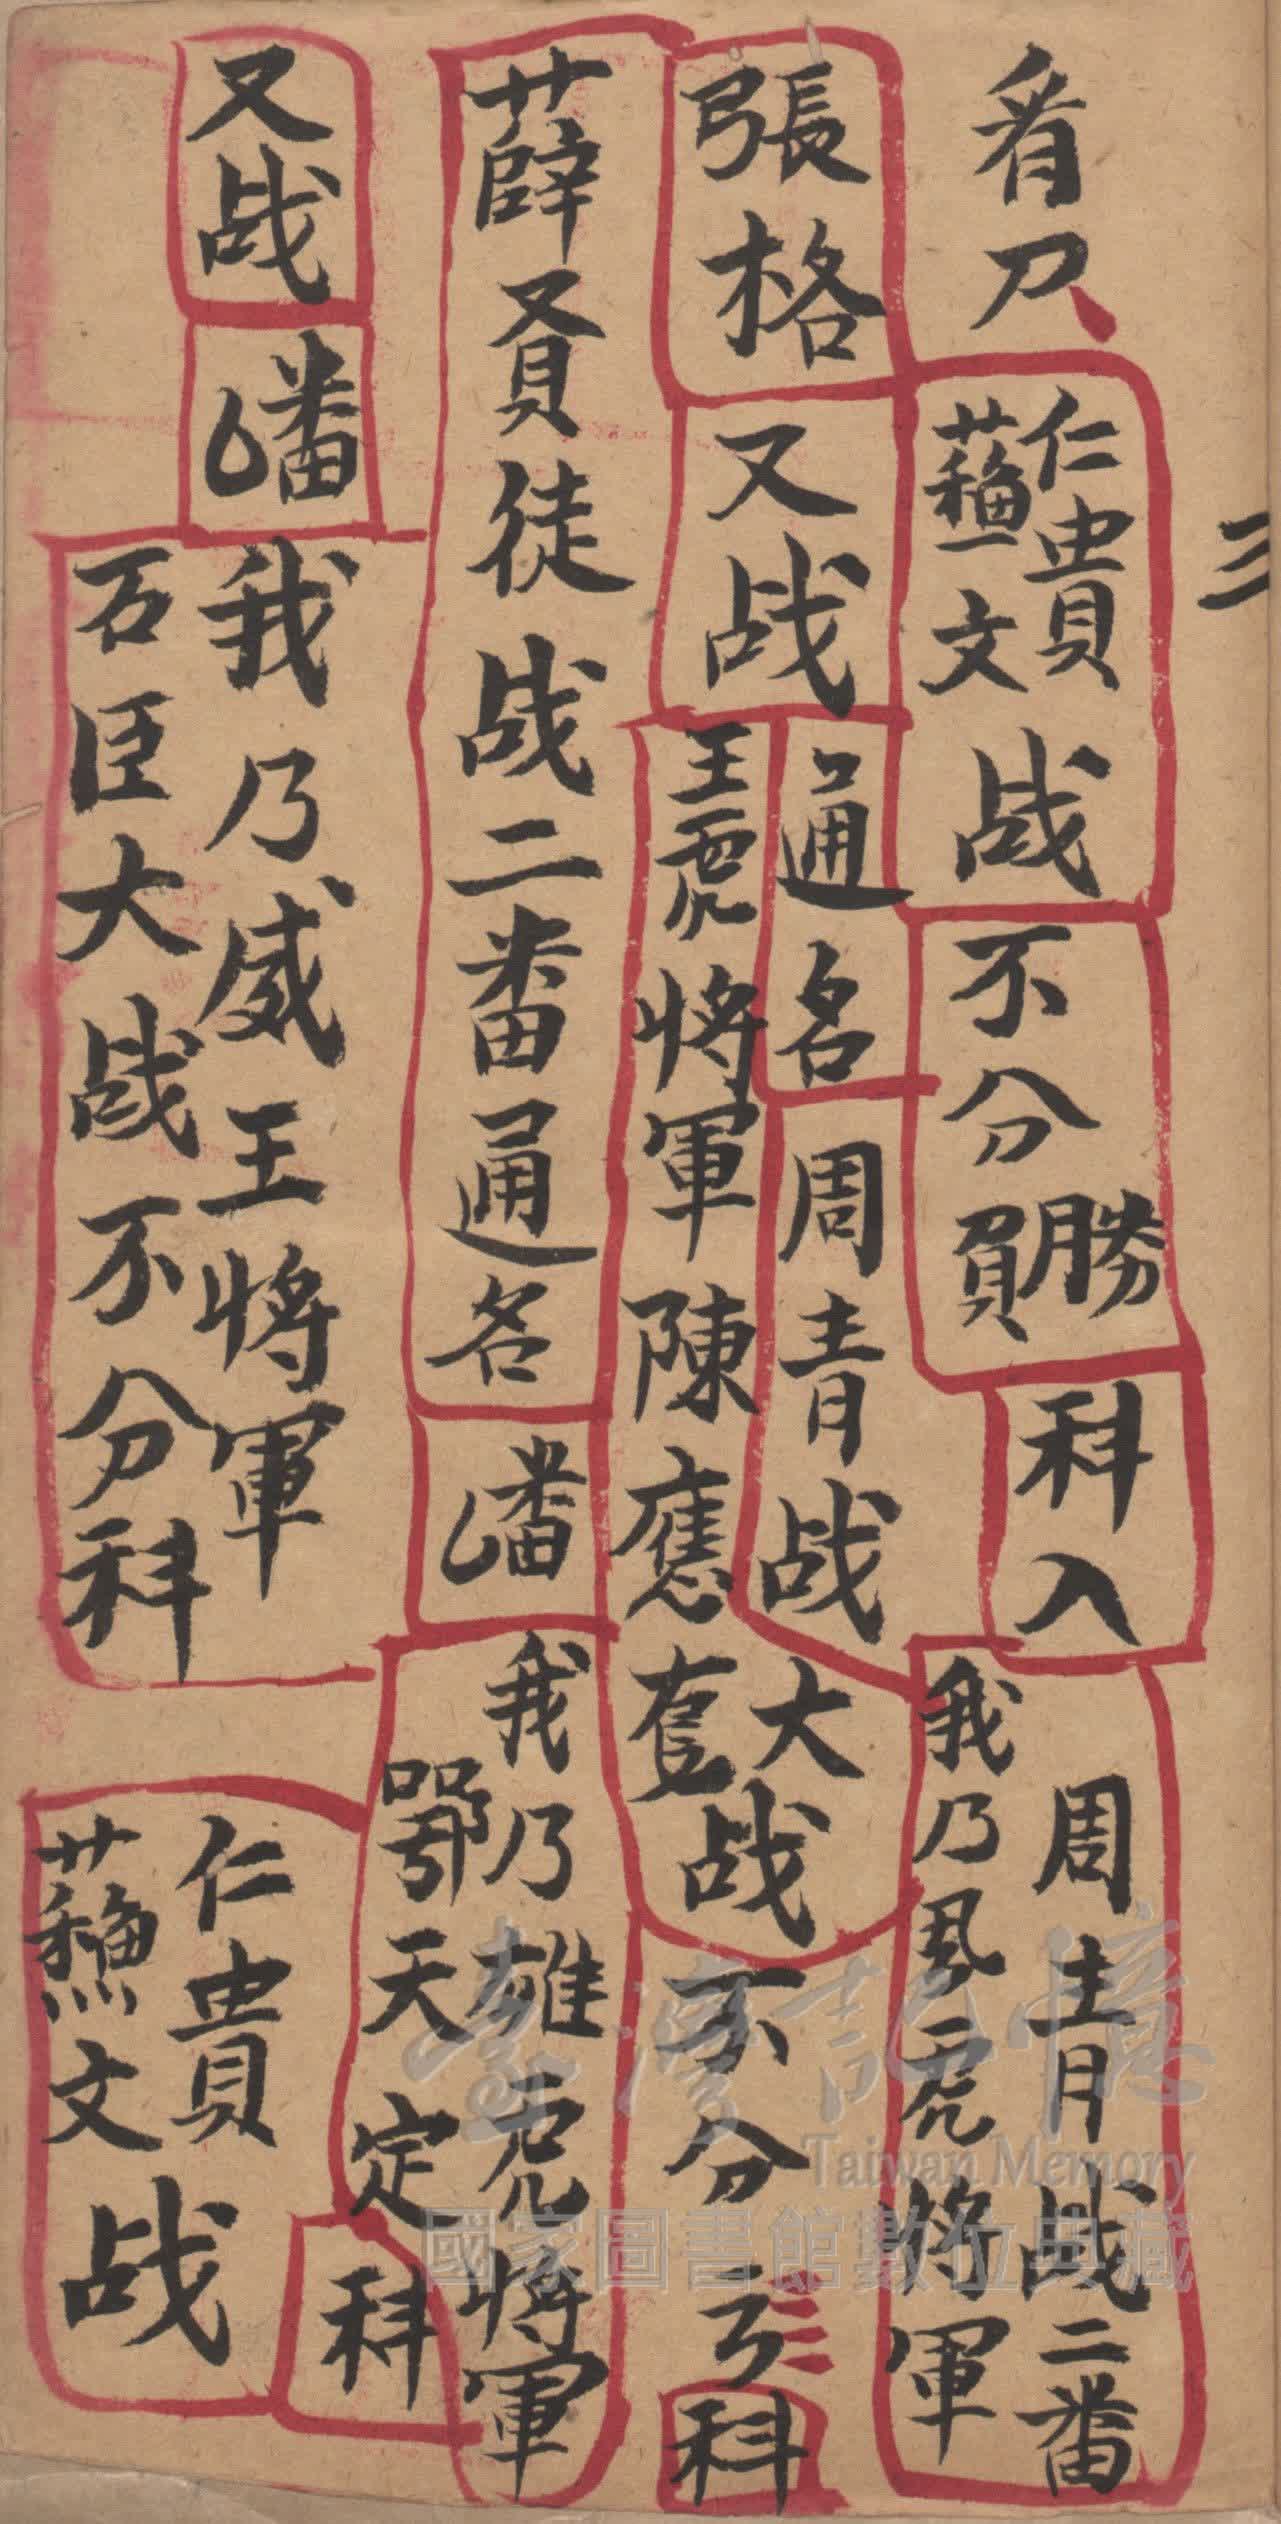 三
看刀
仁貴
蘇文
战
不分
勝
負
科入
周青战二番
我乃風虎將軍
張格
又战
通名
周青战
王虎將軍陳應
大战
不分
科
薛賢徒战二番通名
番
我乃雄虎將軍
鄂天定
科
又战
番
我乃威王將軍
石臣大战不分科
仁貴
蘇文
战
臺灣記憶
Taiwan Memory
國家圖書館數位典藏